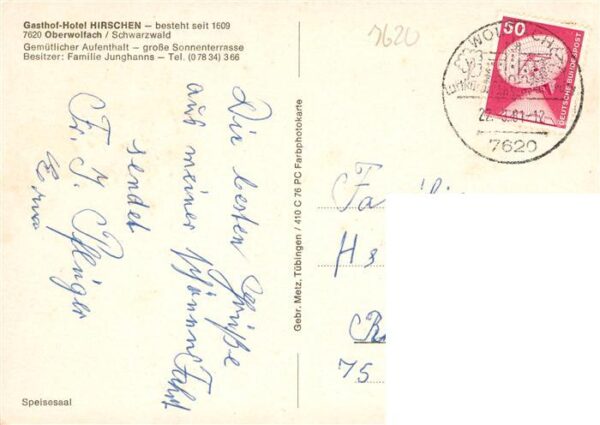 Gasthof-Hotel HIRSCHEN – besteht seit 1609
7620 Oberwolfach / Schwarzwald
Gemütlicher Aufenthalt – große Sonnenterrasse
Besitzer: Familie Junghanns – Tel. (0 78 34) 3 66
Die besten Grüße
aus meiner schönen Fahrt
sendet
Fr. J. Pflüger
Erna
Speisesaal
Gebr. Metz, Tübingen / 410 C 76 PC Farbphotokarte
7620
50
DEUTSCHE BUNDESPOST
7620
Fa
H s
75